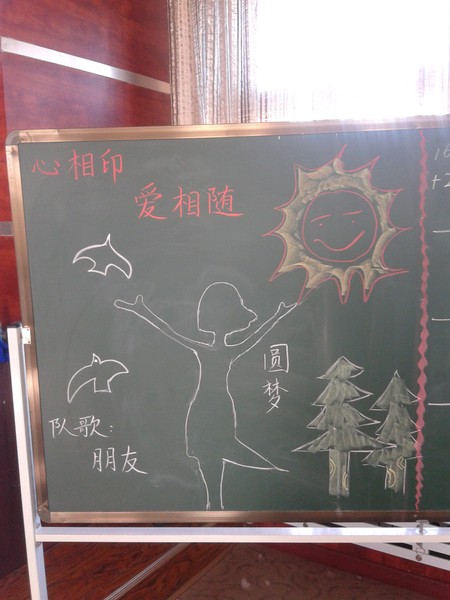 心相印
爱相随
圆梦
队歌：
朋友